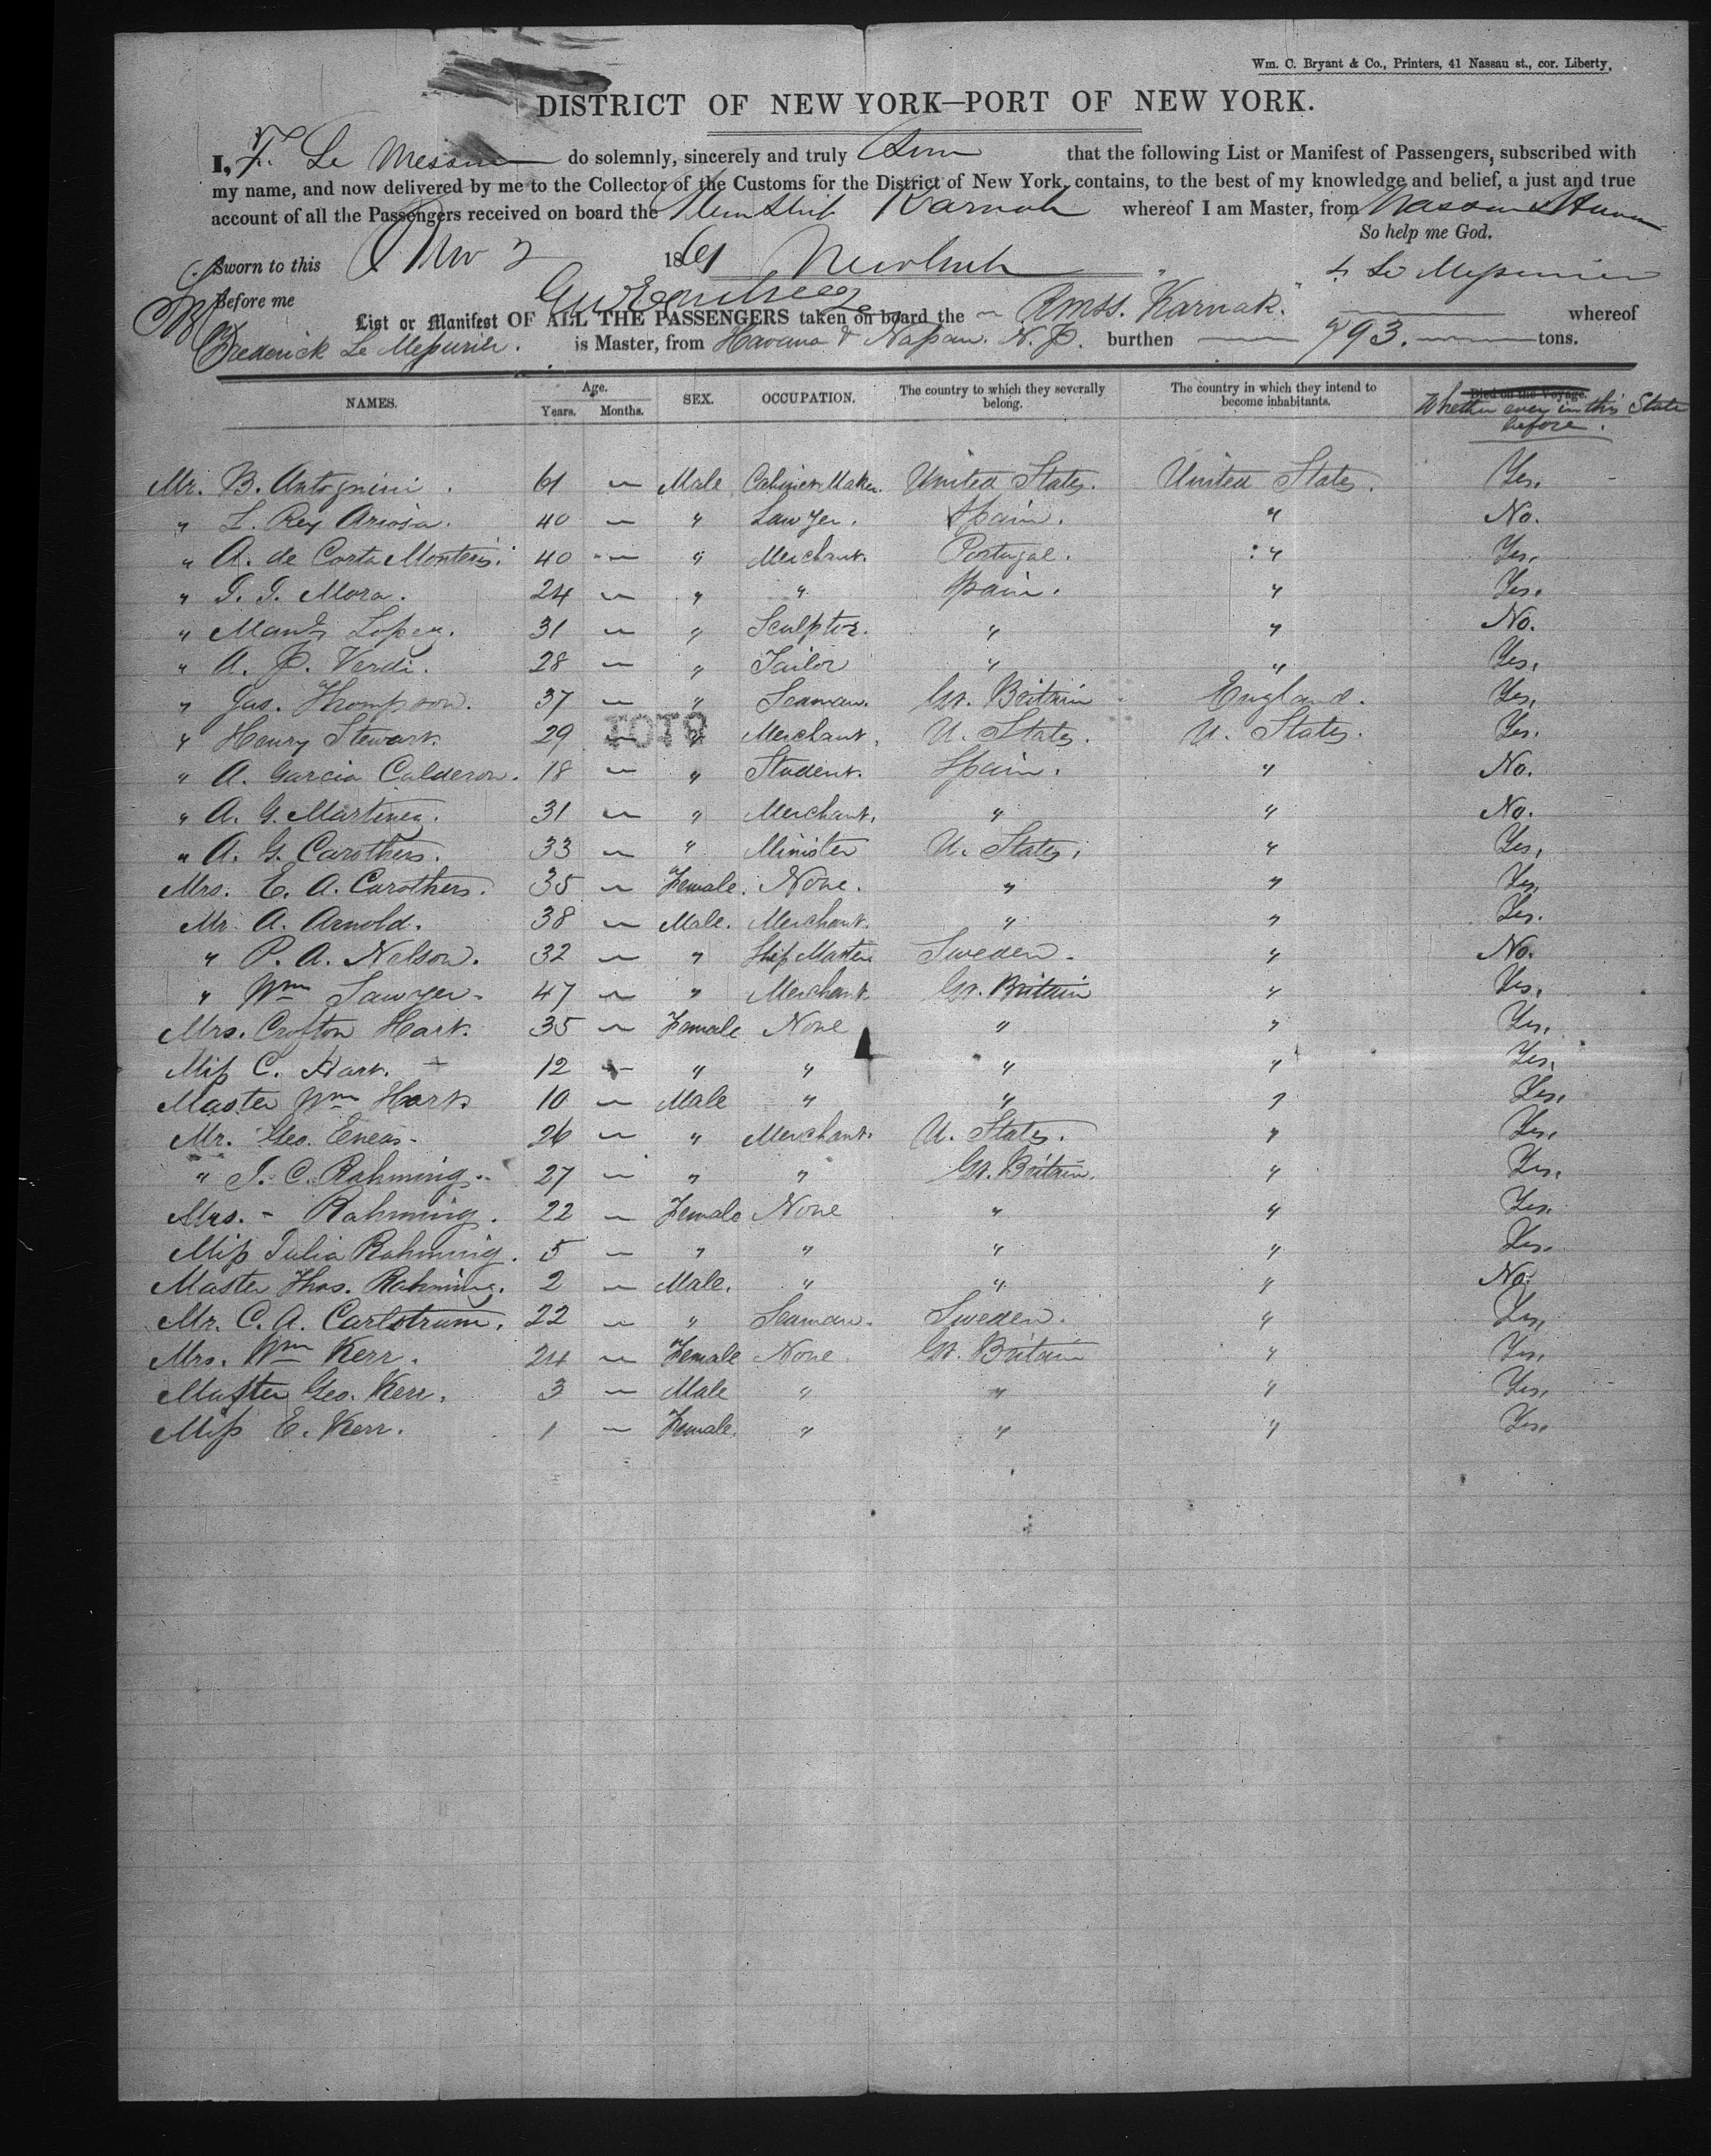 Wm. C. Bryant & Co., Printers, 41 Nassau st., cor. Liberty.
DISTRICT OF NEW YORK—PORT OF NEW YORK.
I, F. Le Messurier do solemnly, sincerely and truly that the following List or Manifest of Passengers, subscribed with
my name, and now delivered by me to the Collector of the Customs for the District of New York, contains, to the best of my knowledge and belief, a just and true
account of all the Passengers received on board the Steam Ship Karnak whereof I am Master, from Nassau &
So help me God.
Sworn to this Nov 2 1861 F. Le Messurier
Before me
List or Manifest OF ALL THE PASSENGERS taken on board the RMSS. Karnak. whereof
Frederick Le Messurier. is Master, from Havana & Nassau. N. P. burthen 793. tons.
NAMES. Age. Years. Months. SEX. OCCUPATION. The country to which they severally belong. The country in which they intend to become inhabitants. Died on the Voyage. Whether ever in this State before.
Mr. B. Antognini. 61 — Male Cabinet Maker. United States. United States. Yes.
" L. Rey Ariosa. 40 — " Lawyer. Spain. " No.
" A. de Corta Monteris. 40 — " Merchant. Portugal. " Yes.
" J. J. Mora. 24 — " " Spain. " Yes.
" Manl. Lopez. 31 — " Sculptor. " " No.
" A. P. Verdi. 28 — " Tailor " " Yes.
" Jas. Thompson. 37 — " Seaman. Gt. Britain England. Yes.
" Henry Stewart. 29 — " Merchant. U. States. U. States. Yes.
" A. Garcia Calderon. 18 — " Student. Spain. " No.
" A. G. Martinez. 31 — " Merchant. " " No.
" A. G. Carothers. 33 — " Minister U. States. " Yes.
Mrs. E. A. Carothers. 35 — Female. None. " " Yes.
Mr. A. Arnold. 38 — Male. Merchant. " " Yes.
" P. A. Nelson. 32 — " Ship Master Sweden. " No.
" Wm Sawyer. 47 — " Merchant Gt. Britain " Yes.
Mrs. Crofton Hart. 35 — Female None " " Yes.
Miss C. Hart. 12 — " " " " Yes.
Master Wm Hart. 10 — Male " " " Yes.
Mr. Geo. Eneas. 26 — " Merchant. U. States. " Yes.
" J. C. Rahming. 27 — " " Gt. Britain. " Yes.
Mrs. - Rahming. 22 — Female None " " Yes.
Miss Julia Rahming. 5 — " " " " Yes.
Master Thos. Rahming. 2 — Male. " " " No.
Mr. C. A. Carlstrum. 22 — " Seaman. Sweden. " Yes.
Mrs. Wm Kerr. 24 — Female None. Gt. Britain " Yes.
Master Geo. Kerr. 3 — Male " " " Yes.
Miss E. Kerr. 1 — Female. " " " Yes.